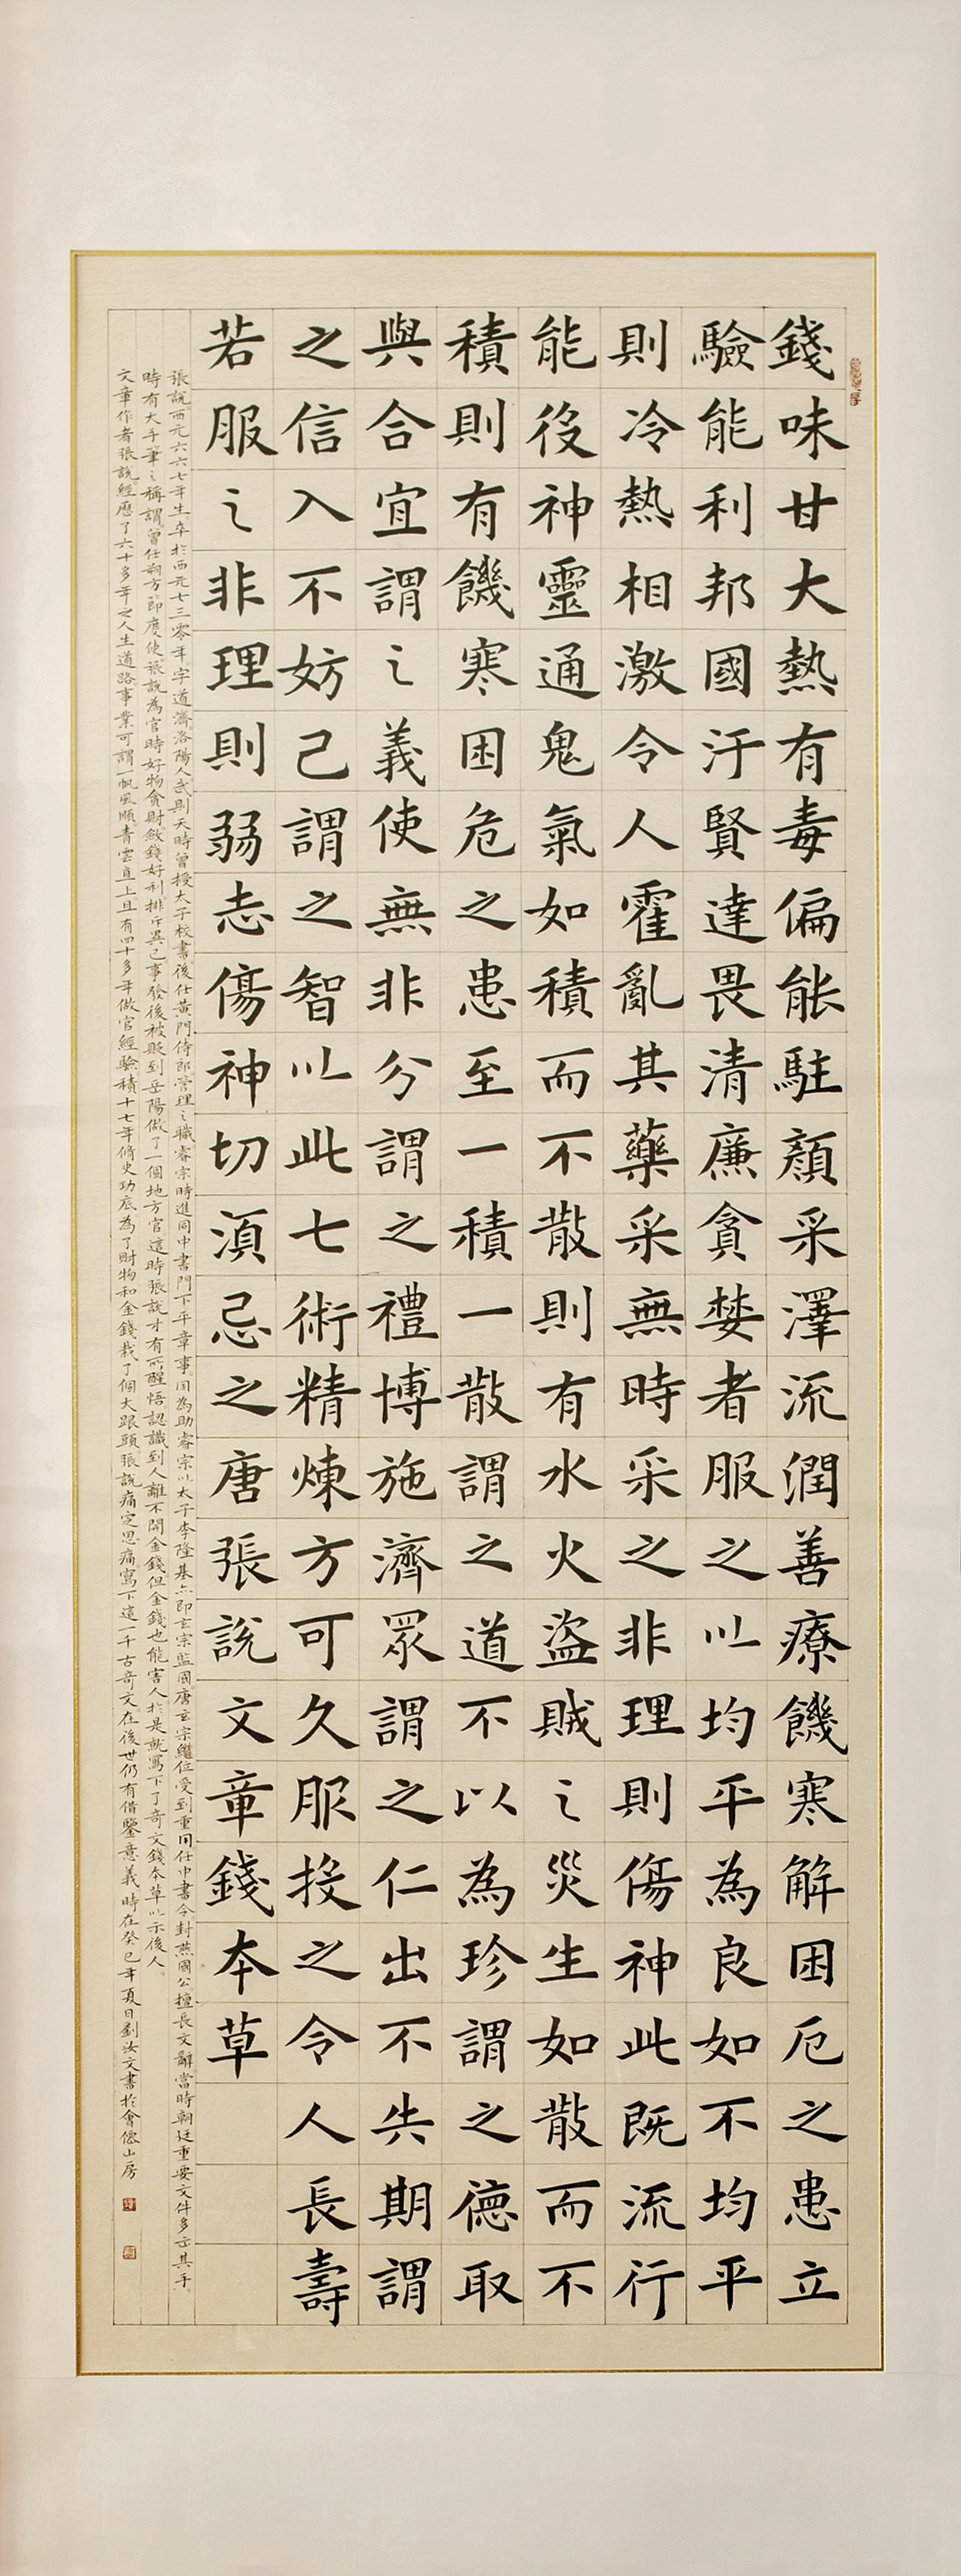 錢味甘大熱有毒偏能駐顏采澤流潤善療饑寒解困厄之患立
驗能利邦國汙賢達畏清廉貪婪者服之以均平為良如不均平
則冷熱相激令人霍亂其藥采無時采之非理則傷神此既流行
能役神靈通鬼氣如積而不散則有水火盜賊之災生如散而不
積則有饑寒困危之患至一積一散謂之道不以為珍謂之德取
與合宜謂之義使無非分謂之禮博施濟眾謂之仁出不失期謂
之信入不妨己謂之智以此七術精煉方可久服投之令人長壽
若服之非理則弱志傷神切須忌之唐張說文章錢本草
張說西元六六七年生卒於西元七三零年字道濟洛陽人武則天時曾授太子校書後任黃門侍郎管理之職睿宗時進同中書門下平章事因為助睿宗以太子李隆基亦即玄宗監國唐玄宗繼位受到重用任中書令封燕國公擅長文辭當時朝廷重要文件多云其手
時有大手筆之稱謂曾任朔方節度使張說為官時好物貪財斂錢好利排斥異己事發後被貶到岳陽做了一個地方官這時張說才有所醒悟認識到人離不開金錢但金錢也能害人於是就寫下了奇文錢本草以示後人
文章作者張說經歷了六十多年之人生道路事業可謂一帆風順青雲直上且有四十多年做官經驗積十七年脩史功底為了財物和金錢栽了個大跟頭張說痛定思痛寫下這一千古奇文在後世仍有借鑒意義時在癸巳年夏日劉汝文書於會僊山房